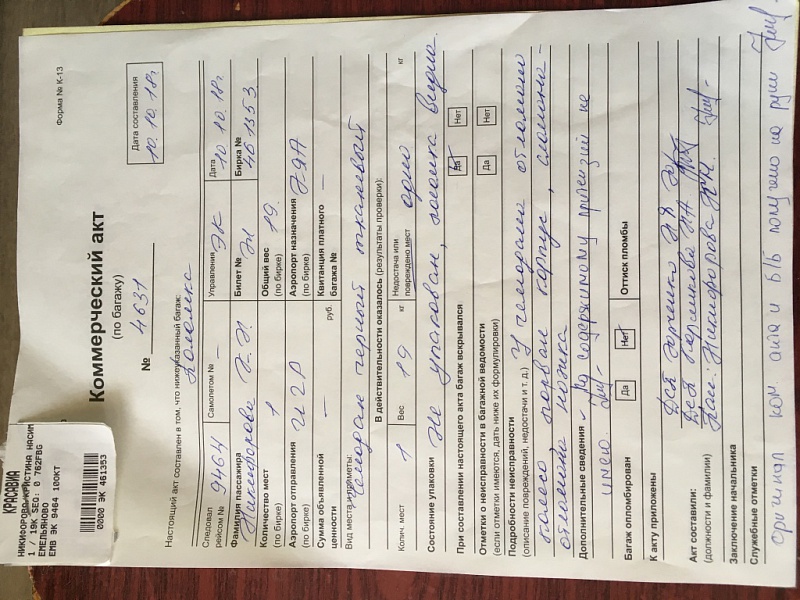 КРАСАВИА
НИКИФОРОВО/КРИСТИНА НАСИМ
1 / 19K SEQ: 0 762FBG
ЕМЕЛЬЯНОВО
ЕМВ ЭК 9464 10ОКТ
0000 ЭК 461353
Форма № К-13
Дата составления
10.10.18г.
Коммерческий акт
(по багажу)
№ 4631
Настоящий акт составлен в том, что нижеуказанный багаж:
Поломка
Следовал рейсом № 9464 Самолетом № – Управления ЭК Дата 10.10.18г.
Фамилия пассажира Никифорова К.Н. Билет № ЭЛ Бирка № 461353
Количество мест (по бирке) 1 Общий вес (по бирке) 19
Аэропорт отправления (по бирке) Аэропорт назначения (по бирке)
Сумма объявленной ценности – руб. Квитанция платного багажа № –
Вид места, приметы: чемодан черный тканевый
В действительности оказалось (результаты проверки):
Колич. мест 1 Вес 19 кг Недостача или повреждено мест одно кг
Состояние упаковки Не упакован, поломка видна.
При составлении настоящего акта багаж вскрывался Да Нет
Отметки о неисправности в багажной ведомости Да Нет
(если отметки имеются, дать ниже их формулировки)
Подробности неисправности
(описание повреждений, недостачи и т. д.) У чемодана отломано
колесо порван корпус, сломана-
отломана ножка
Дополнительные сведения - По содержимому претензий не
имею
Багаж опломбирован Да Нет Оттиск пломбы
К акту приложены
Акт составили:
(должности и фамилии)
Пас.: Никифорова К.Н.
Заключение начальника
Служебные отметки
оригинал ком акта и б/б получено на руки